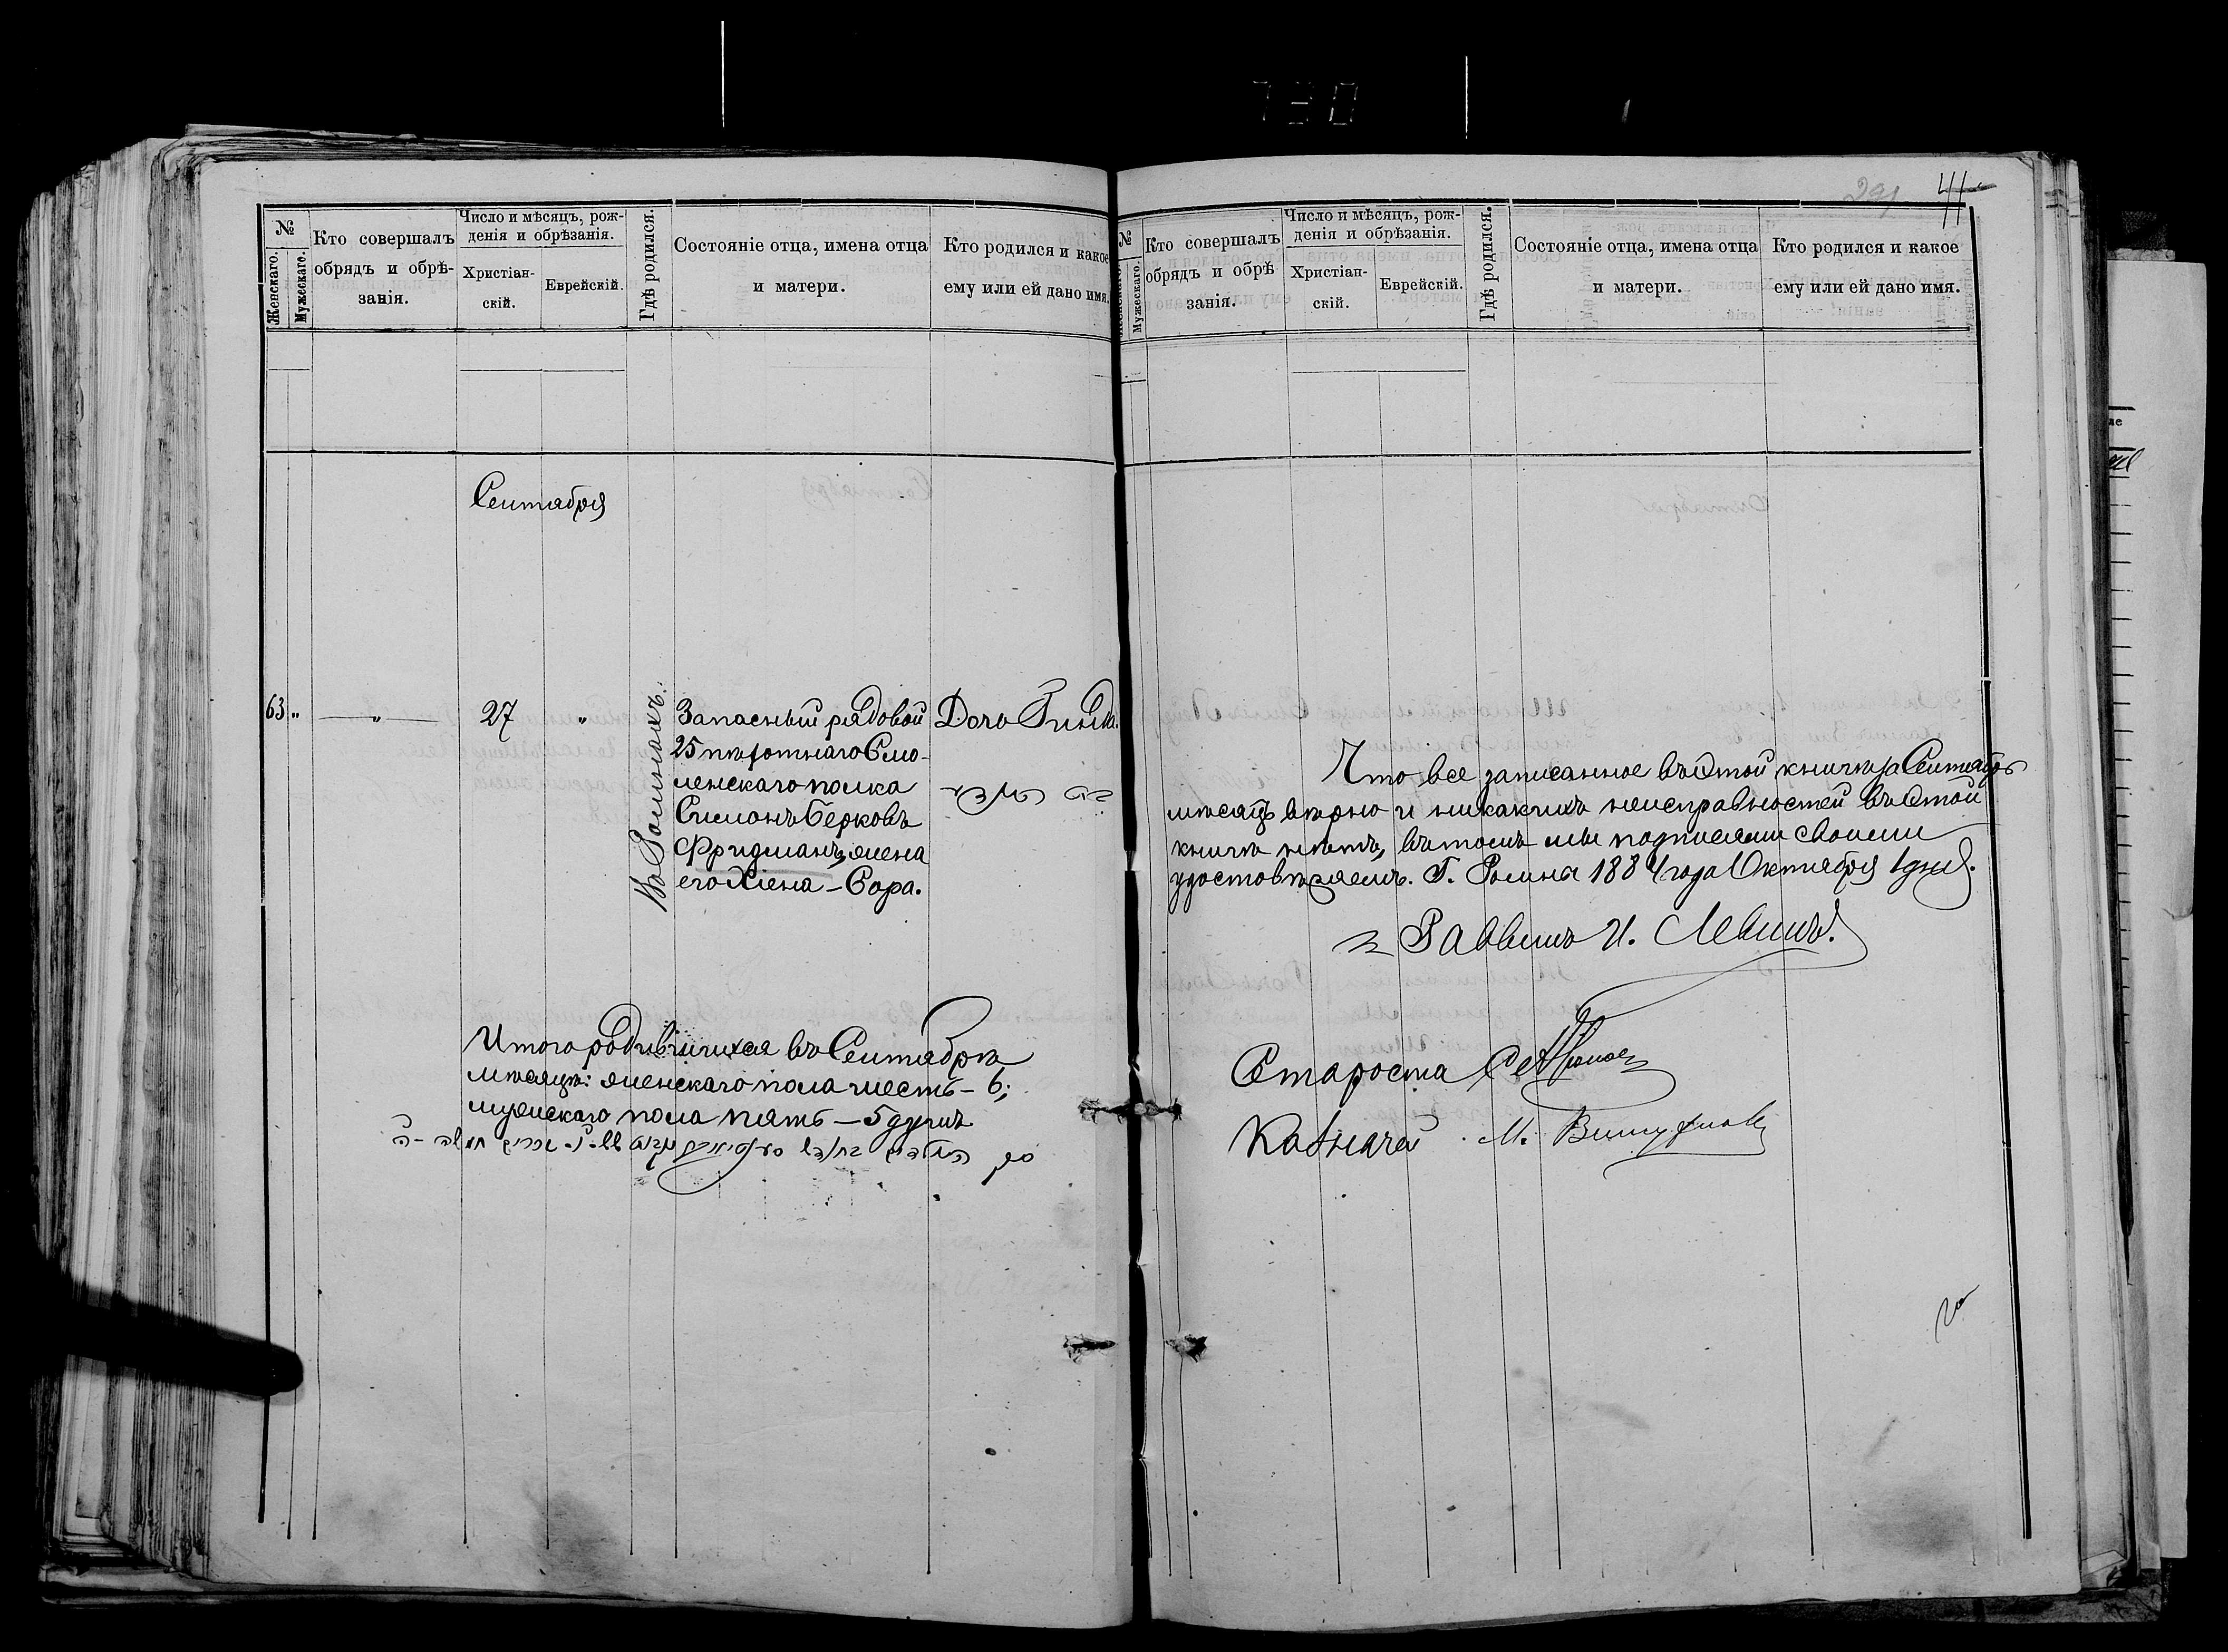 730
291 41
№
Женскаго.
Мужескаго.
Кто совершалъ
обрядъ и обрѣ-
занія.
Число и мѣсяцъ, рож-
денія и обрѣзанія.
Христіан-
скій.
Еврейскій.
Гдѣ родился.
Состояніе отца, имена отца
и матери.
Кто родился и какое
ему или ей дано имя.
Сентября
63 "
"
27 "
Въ Ромнахъ.
Запасный рядовой
25 пѣхотнаго Смо-
ленскаго полка
Симонъ Берковъ
Фридманъ, жена
его Хіена-Сора.
Дочь
Итого родившихся въ Сентябрѣ
мѣсяцѣ: женскаго пола шесть - 6;
мужескаго пола пять - 5 душъ
№
Мужескаго.
Кто совершалъ
обрядъ и обрѣ
занія.
Число и мѣсяцъ, рож-
денія и обрѣзанія.
Христіан-
скій.
Еврейскій.
Гдѣ родился.
Состояніе отца, имена отца
и матери.
Кто родился и какое
ему или ей дано имя.
Что все записанное въ этой книгѣ за Сентябрь
мѣсяцъ вѣрно и никакихъ неисправностей въ этой
книгѣ нѣтъ, въ томъ мы подписями своими
удостовѣряемъ. Г. Ромна 1884 года Октября 1 дня.
Раввинъ И. Левинъ.
Староста
Казначей М.